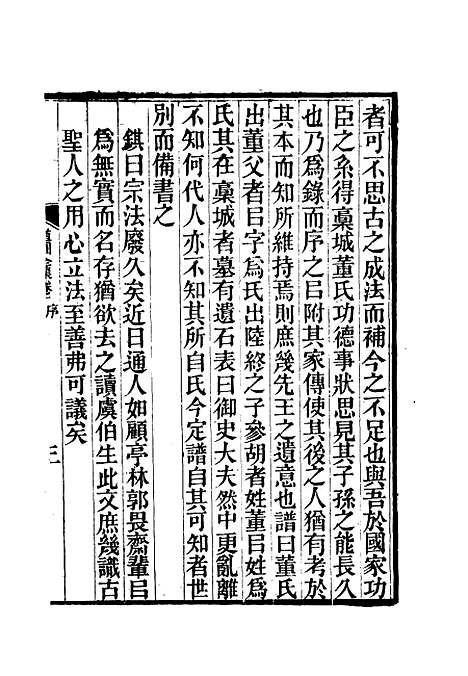 者可不思古之成法而補今之不足也與吾於國家功
臣之系得稾城董氏功德事狀思見其子孫之能長久
也乃爲錄而序之㠯附其家傳使其後之人猶有考於
其本而知所維持焉則庶幾先王之遺意也譜曰董氏
出董父者㠯字爲氏出陸終之子參胡者姓董㠯姓爲
氏其在稾城者墓有遺石表曰御史大夫然中更亂離
不知何代人亦不知其所自氏今定譜自其可知者世
別而備書之
錤曰宗法廢久矣近日通人如顧亭林郭畏齋輩㠯
爲無實而名存猶欲去之讀虞伯生此文庶幾識古
聖人之用心立法至善弗可議矣
卷二 序
三